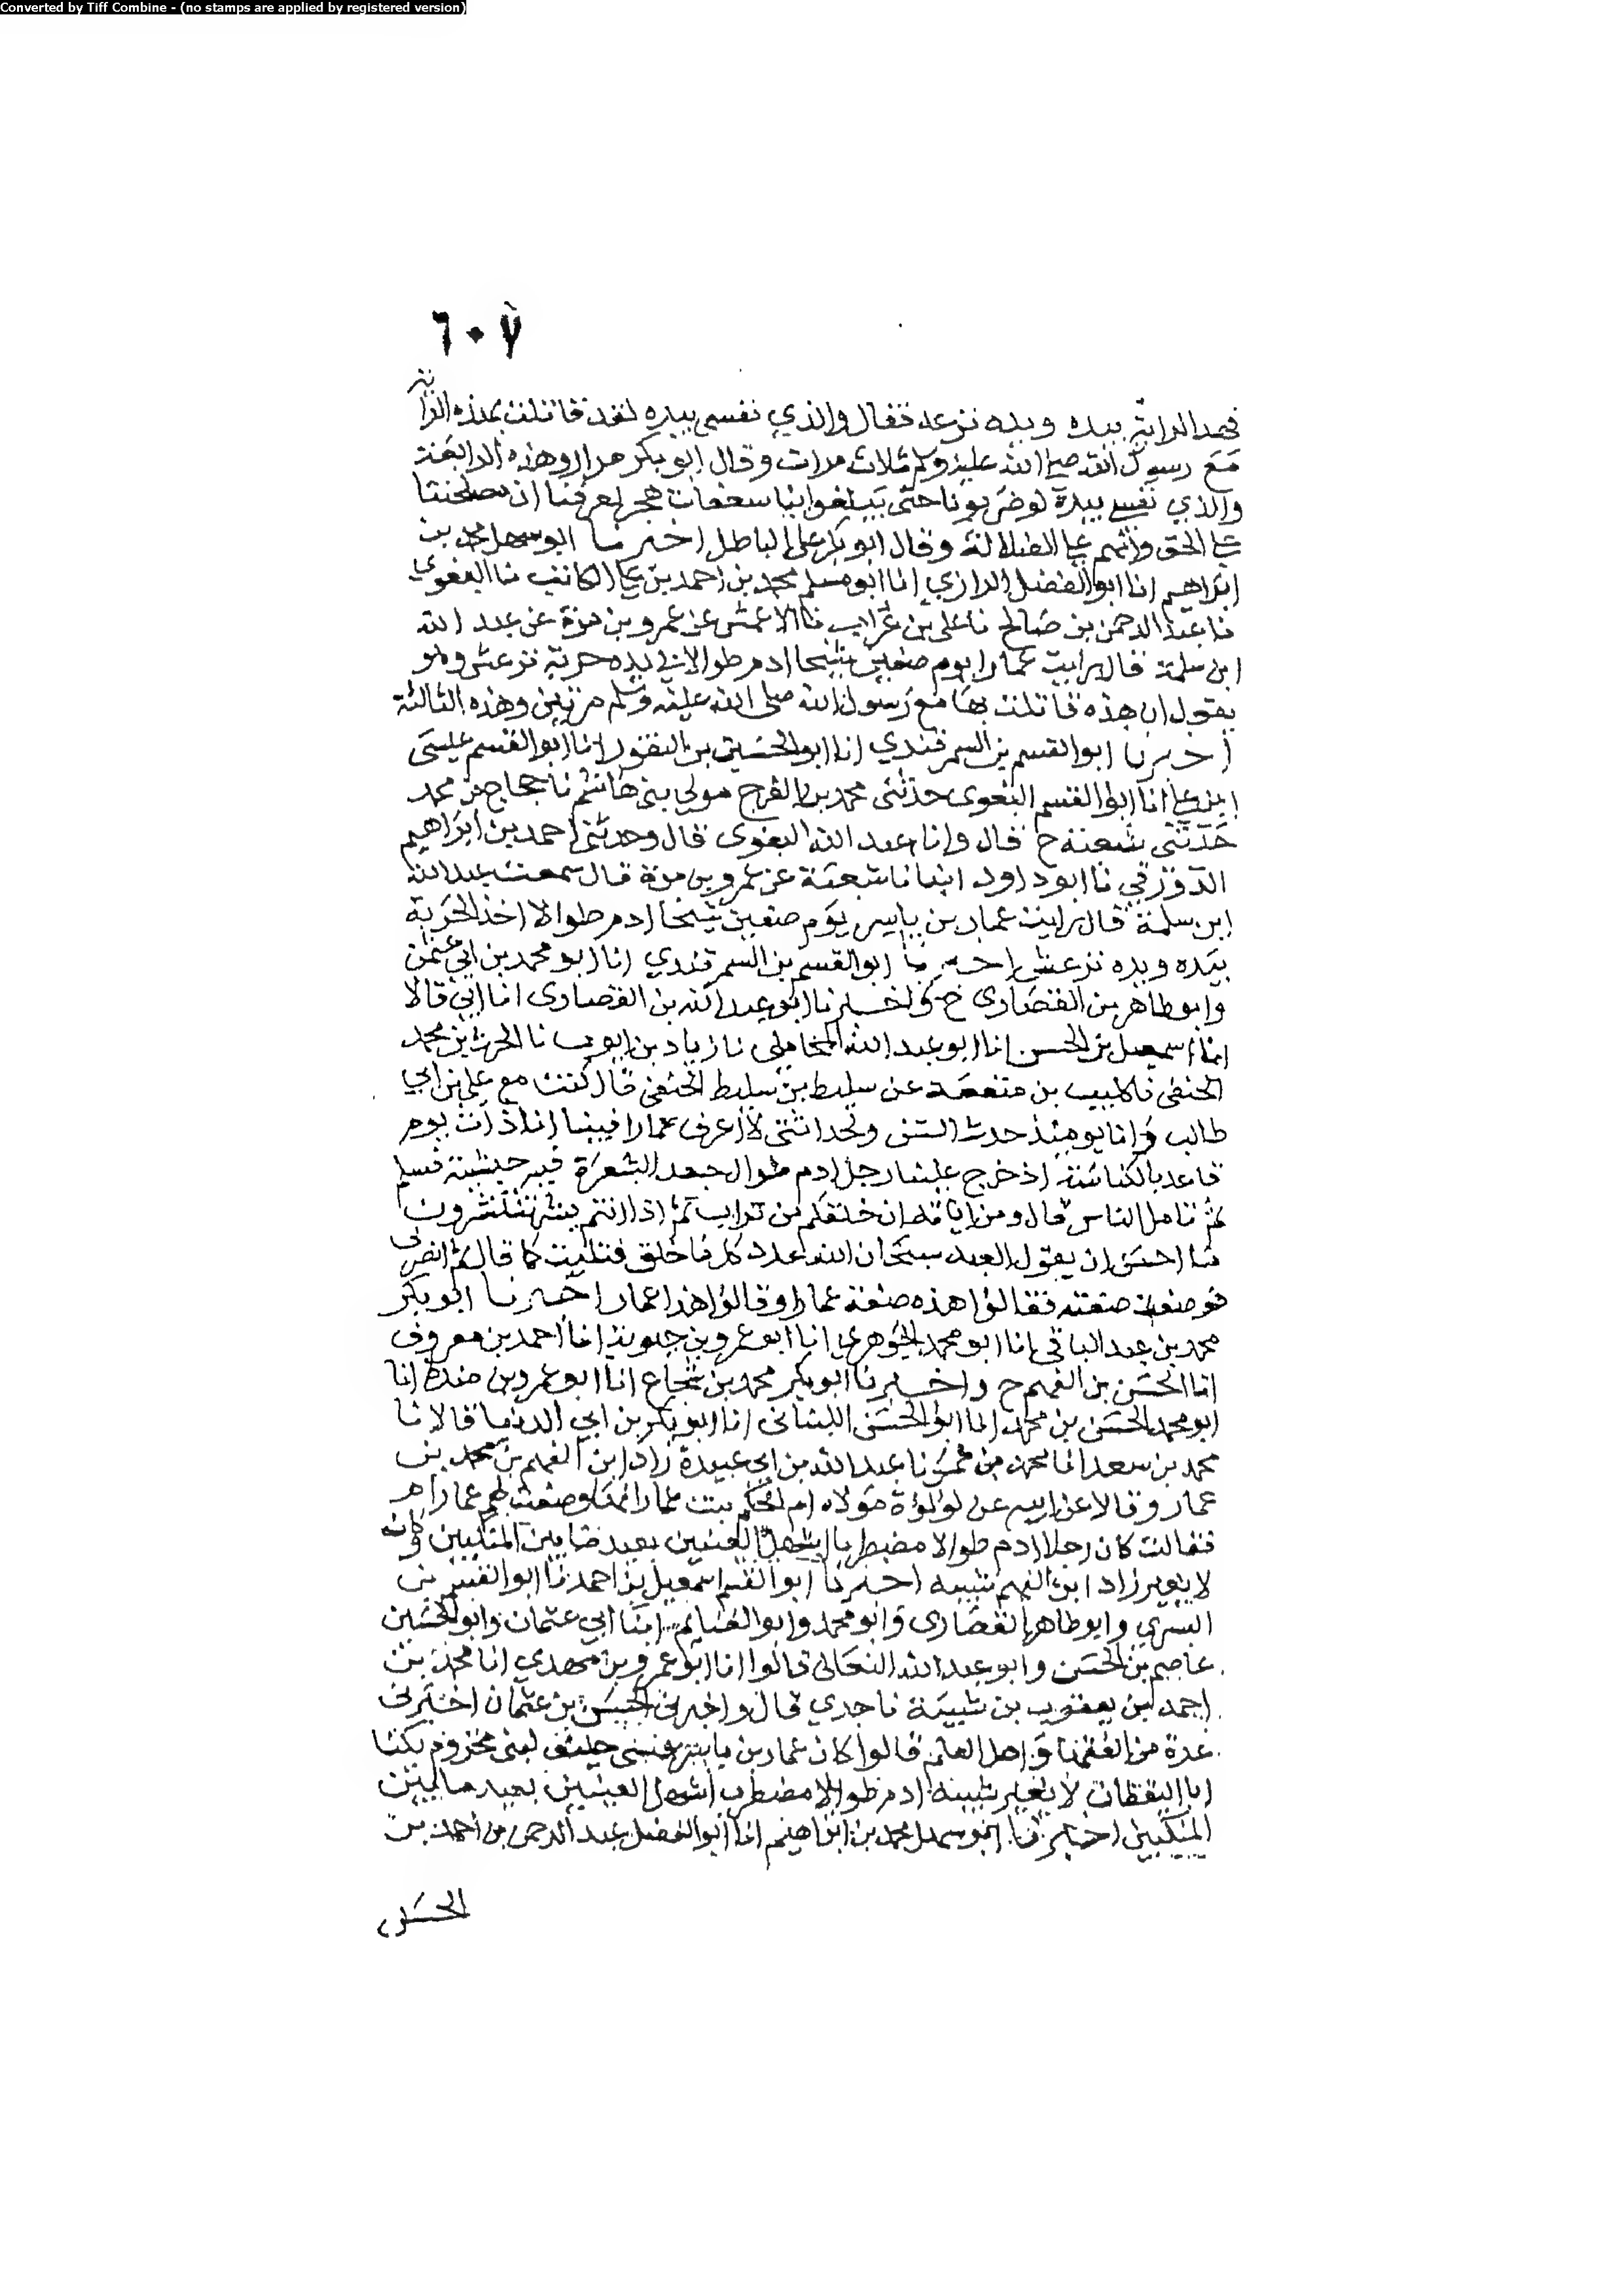 Converted by Tiff Combine - (no stamps are applied by registered version)
٦٠٧
الراية بيده ويده ترعد فقال والذي نفسي بيده لقد قاتلت بهذه الراية
مع رسول الله صلى الله عليه وسلم ثلاث مرات وقال ابو بكر مرارا وهذه الرابعة
والذي نفسي بيده لو ضربونا حتى يبلغوا بنا سعفات هجر لعرفنا ان مصلحتنا
على الحق وانهم على الضلالة وقال ابو بكر على الباطل اخبرنا ابو سهل محمد بن
ابراهيم انا ابو الفضل الرازي انا ابو مسلم محمد بن احمد بن علي الكاتب نا البغوي
نا عبد الرحمن بن صالح نا علي بن غراب نا الاعمش عن عمرو بن مرة عن عبد الله
ابن سلمة قال رايت عمارا يوم صفين شيخا ادم طوالا في يده حربة ترعش وهو
يقول ان هذه قاتلت بها مع رسول الله صلى الله عليه وسلم مرتين وهذه الثالثة
اخبرنا ابو القسم بن السمرقندي انا ابو الحسين بن النقور انا ابو القسم عيسى
ابن علي انا ابو القسم البغوى حدثنى محمد بن الفرج مولي بنى هاشم نا حجاج بن محمد
حدثنى شعبة ح قال وانا عبد الله البغوى قال وحدثني احمد بن ابراهيم
الدورقي نا ابو داود انبانا شعبة عن عمرو بن مرة قال سمعت عبد الله
ابن سلمة قال رايت عمار بن ياسر يوم صفين شيخا ادم طوالا اخذ الحربة
بيده ويده ترعش اخبرنا ابو القسم بن السمرقندي انا ابو محمد بن ابي عثمن
وابو طاهر بن القصارى ح واخبرنا ابو عبد الله بن القصارى انا ابي قالا
انا اسمعيل بن الحسن انا ابو عبد الله المحاملى نا زياد بن ايوب نا الحرث بن محمد
الحنفى نا كليب بن منفعة عن سليط بن سليط الحنفى قال كنت مع علي بن ابي
طالب وانا يومئذ حدث السن ولحداثتى لا اعرف عمارا فبينا انا ذات يوم
قاعد بالكناسة اذ خرج علينا رجل ادم طوال جعد الشعرة فيه حبشية فسلم
ثم تامل الناس قال ومن اياته ان خلقكم من تراب ثم اذا انتم بشر تنتشرون
ما احسن ان يقول العبد سبحان الله عدد كل ما خلق كما قال ثم انصرف
فوصفت صفته فقالوا هذه صفة عمار وقالوا هذا عمار اخبرنا ابو بكر
محمد بن عبد الباقي انا ابو محمد الجوهري انا ابو عمرو بن حيوية انا احمد بن معروف
انا الحسن بن الفهم ح واخبرنا ابو بكر محمد بن شجاع انا ابو عمرو بن منده انا
ابو محمد الحسن بن محمد انا ابو الحسن اللبنانى انا ابو بكر بن ابي الدنيا قالا نا
محمد بن سعد انا محمد بن عمر نا عبد الله بن ابي عبيدة زاد ابن الفهم بن محمد بن
عمار وقالا عن ابيه عن لولوة مولاة ام الحكم بنت عمار انها وصفت لهم عمارا
فقالت كان رجلا ادم طوالا مضطربا اشهل العينين بعيد ما بين المنكبين وكان
لا يغير زاد ابن الفهم شيبه اخبرنا ابو القسم اسمعيل بن احمد نا ابو القسم بن
البسري وابو طاهر القصارى وابو محمد وابو الغنايم ابنا ابي عثمان وابو الحسين
عاصم بن الحسن وابو عبد الله النعالى قالوا انا ابو عمرو بن مهدي انا محمد بن
احمد بن يعقوب بن شيبة نا جدي قال واخبرنى الحسن بن عثمان اخبرنى
عدة من الفقهاء واهل العلم قالوا كان عمار بن ياسر عنسى حليف لبنى مخزوم يكنا
ابا اليقظان لا يغير شيبه ادم طوالا مضطرب اشهل العينين بعيد ما بين
المنكبين اخبرنا ابو سهل محمد بن ابراهيم انا ابو الفضل عبد الرحمن بن احمد بن
الحسن